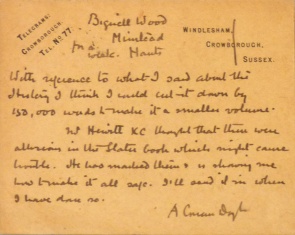 TELEGRAMS:
CROWBOROUGH.
TEL. NO 77.
Bignell Wood
Minstead
Hants
for a week.
WINDLESHAM,
CROWBOROUGH,
SUSSEX.
With reference to what I said about the
I think I could cut it down by
150,000 words & make it a smaller volume.
Mr Hewitt KC thought that there were
allusions in the Slater book which might cause
trouble. He has marked them & is showing me
how to make it all safe. I'll send it in when
I have done so.
A Conan Doyle